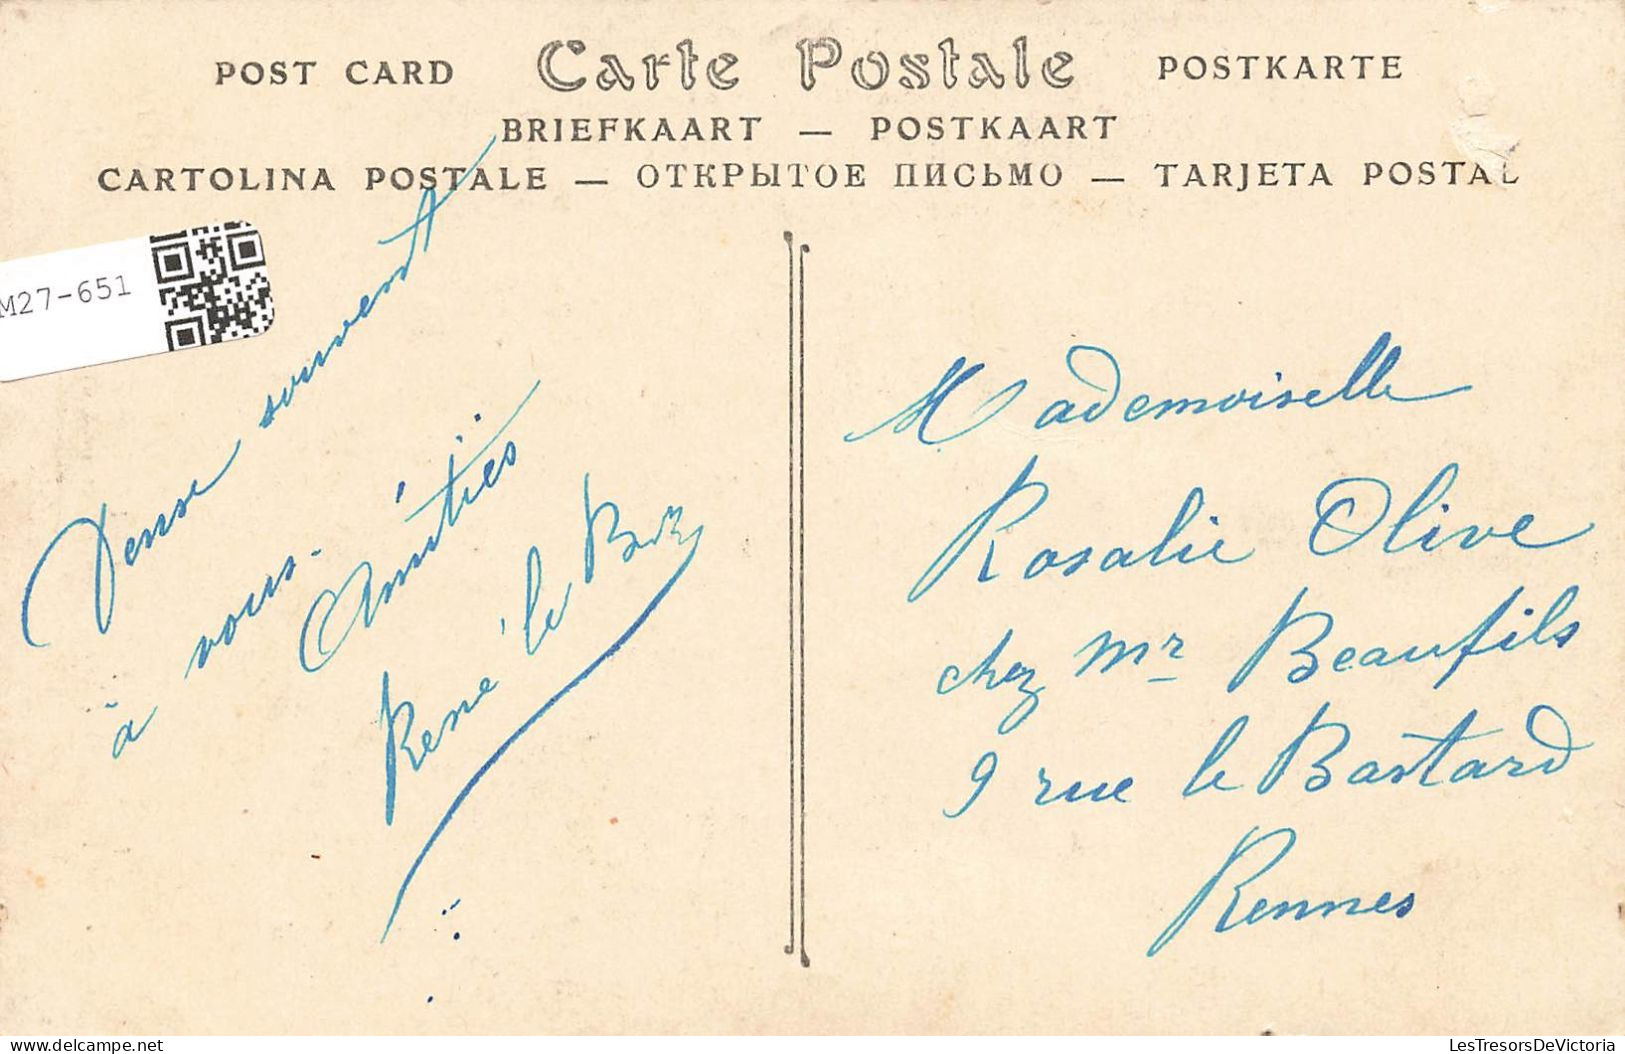 POST CARD Carte Postale POSTKARTE
BRIEFKAART — POSTKAART
CARTOLINA POSTALE — ОТКРЫТОЕ ПИСЬМО — TARJETA POSTAL
M27-651
Pense souvent
à vous.
Amitiés
René le
Mademoiselle
Rosalie Olive
chez Mr Beaufils
9 rue le Bastard
Rennes
delcampe.net
LesTresorsDeVictoria